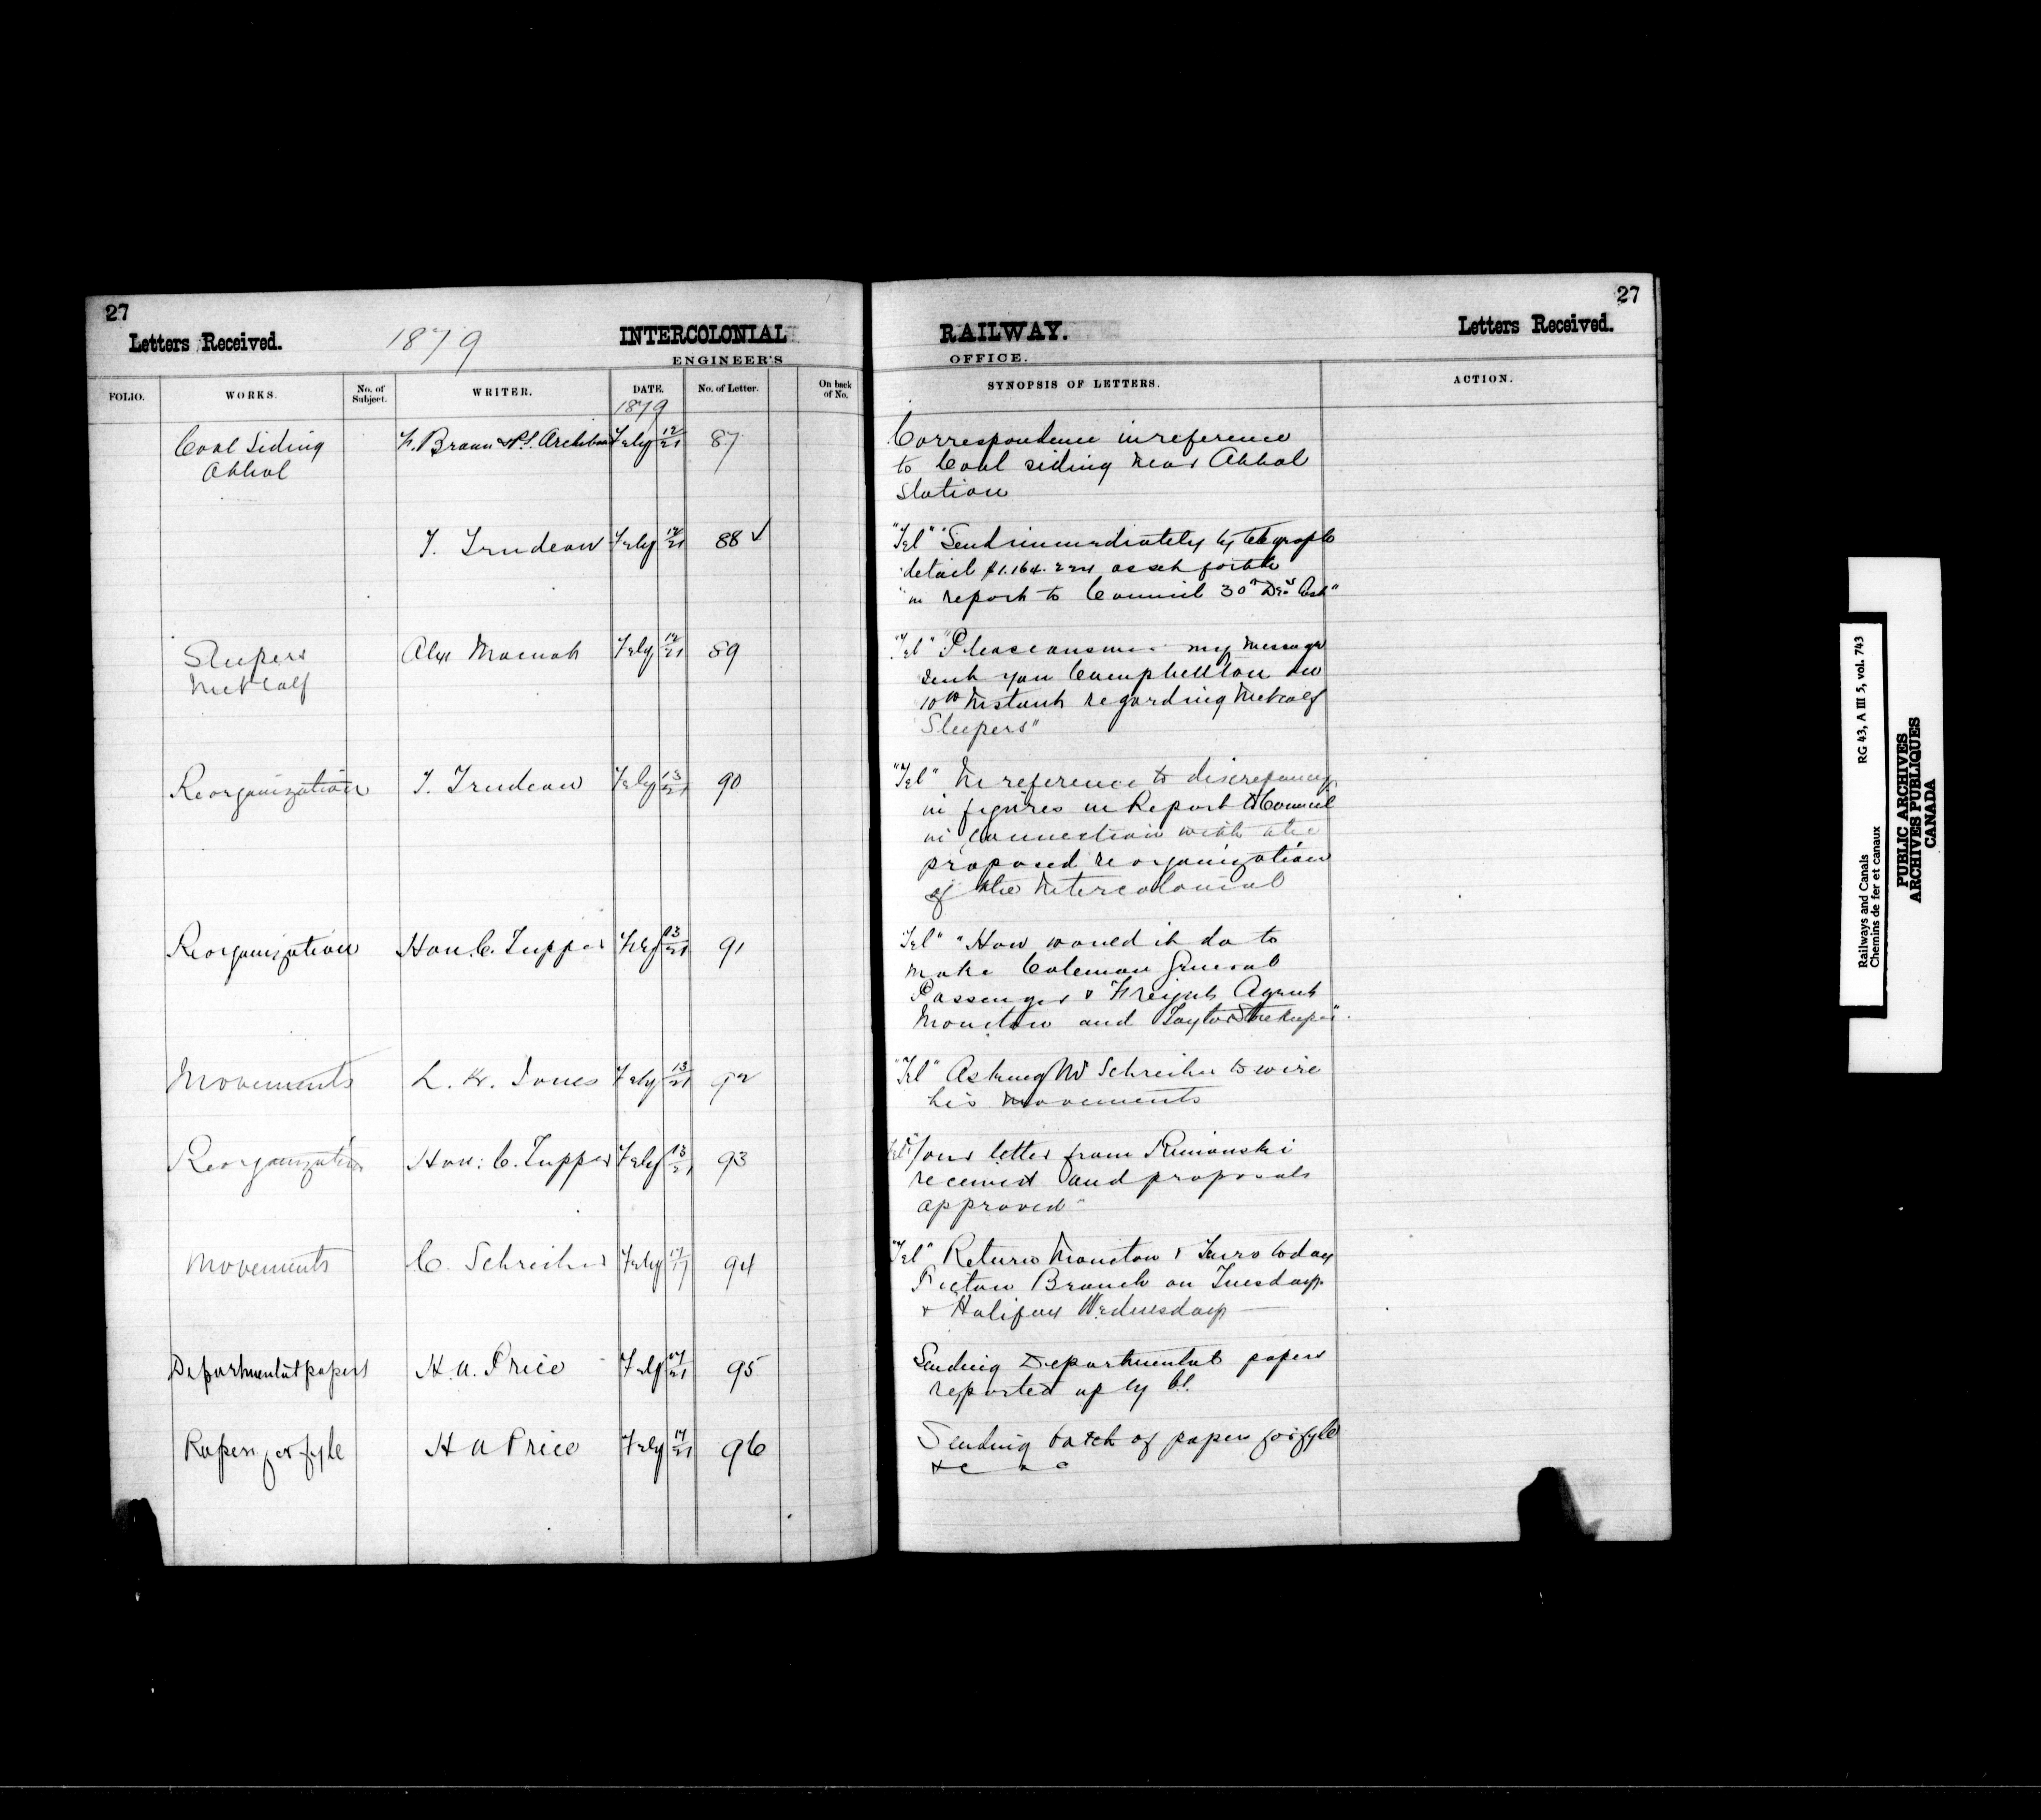 27
Letters Received.
1879
INTERCOLONIAL
ENGINEER'S
FOLIO.
WORKS.
No. of Subject.
WRITER.
DATE.
No. of Letter.
On back of No.
1879
27
RAILWAY.
OFFICE.
Letters Received.
SYNOPSIS OF LETTERS.
ACTION.
Coal Siding F. Braun & P.S. Archibald Feby 12/21 87 Correspondence in reference
Athol to Coal siding near Athol
Station
T. Trudeau Feby 12/21 88 ✓ "Tel" "Send immediately by telegraph
detail $1.164. as set forth
"in report to Council 30th
Sleepers Alex Macnab Feby 12/21 89 "Tel" "Please answer my message
Metcalf sent you Campbellton on
10th Instant regarding Metcalf
Sleepers"
Reorganization T. Trudeau Feby 13/21 90 "Tel" In reference to discrepancy
in figures in Report to Council
in connection with the
proposed reorganization
of the Intercolonial
Reorganization Hon. C. Tupper Feby 13/21 91 "Tel" "How would it do to
make Coleman General
Passenger & Freight Agent
Moncton and Taylor Storekeeper".
Movements L. K. Jones Feby 13/21 92 "Tel" Asking Mr Schreiber to wire
his movements
Reorganization Hon: C. Tupper Feby 13/21 93 "Tel" Your letter from Rimouski
received and proposals
approved"
Movements C. Schreiber Feby 94 "Tel" Return Moncton & Truro today
Pictou Branch on Tuesday
& Halifax Wednesday
Departmental papers H. A. Price Feby 14/21 95 Sending Departmental papers
reported up by
Papers for fyle H A Price Feby 14/21 96 Sending batch of papers for fyle
&c &c
Railways and Canals RG 43, A III 5, vol. 743
Chemins de fer et canaux
PUBLIC ARCHIVES
ARCHIVES PUBLIQUES
CANADA